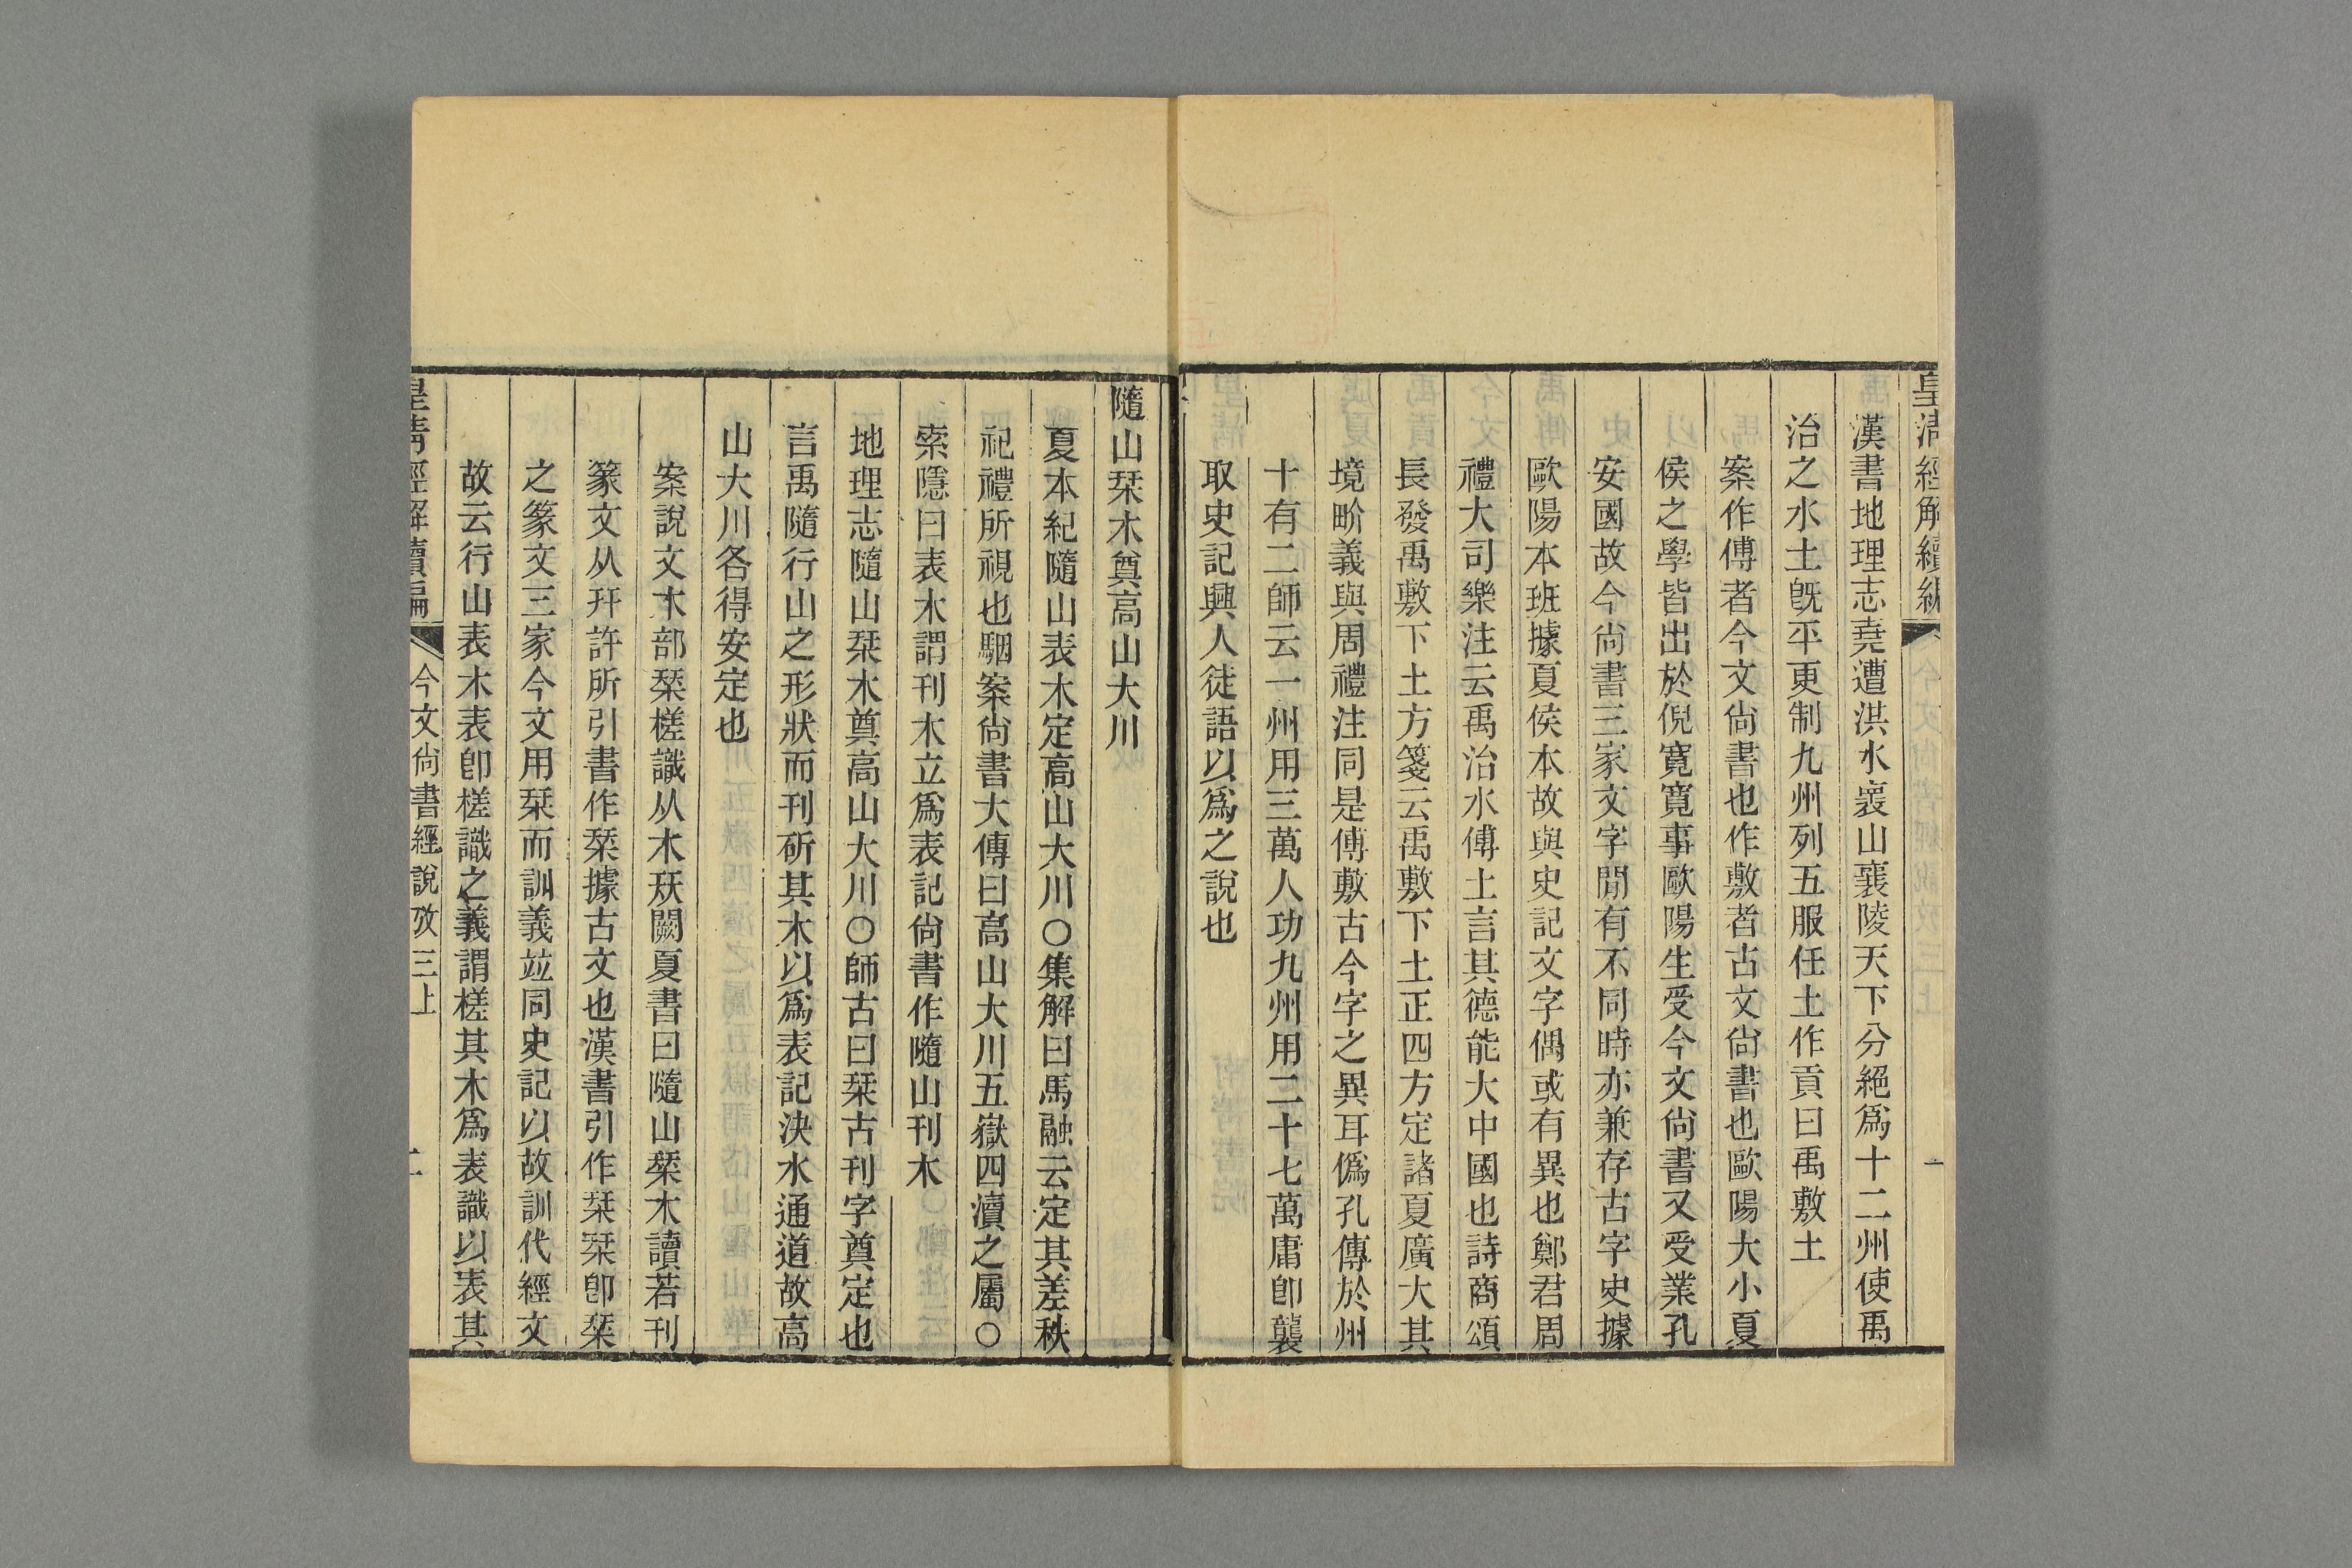 皇清經解續編
一
漢書地理志堯遭洪水褱山襄陵天下分絕爲十二州使禹
治之水土旣平更制九州列五服任土作貢曰禹敷土
案作傅者今文尙書也作敷者古文尙書也歐陽大小夏
侯之學皆出於倪寬寬事歐陽生受今文尙書又受業孔
安國故今尙書三家文字閒有不同時亦兼存古字史據
歐陽本班據夏侯本故與史記文字偶或有異也鄭君周
禮大司樂注云禹治水傅土言其德能大中國也詩商頌
長發禹敷下土方箋云禹敷下土正四方定諸夏廣大其
境畍義與周禮注同是傅敷古今字之異耳僞孔傳於州
十有二師云一州用三萬人功九州用二十七萬庸卽襲
取史記興人徒語以爲之說也
隨山栞木奠高山大川
夏本紀隨山表木定高山大川○集解曰馬融云定其差秩
祀禮所視也駰案尙書大傳曰高山大川五嶽四瀆之屬○
索隱曰表木謂刊木立爲表記尙書作隨山刊木
地理志隨山栞木奠高山大川○師古曰栞古刊字奠定也
言禹隨行山之形狀而刊斫其木以爲表記決水通道故高
山大川各得安定也
案說文木部栞槎識从木㺇闕夏書曰隨山栞木讀若刊
篆文从幵許所引書作栞據古文也漢書引作栞栞卽栞
之篆文三家今文用栞而訓義竝同史記以故訓代經文
故云行山表木表卽槎識之義謂槎其木爲表識以表其
皇清經解續編
今文尙書經說攷三上
二